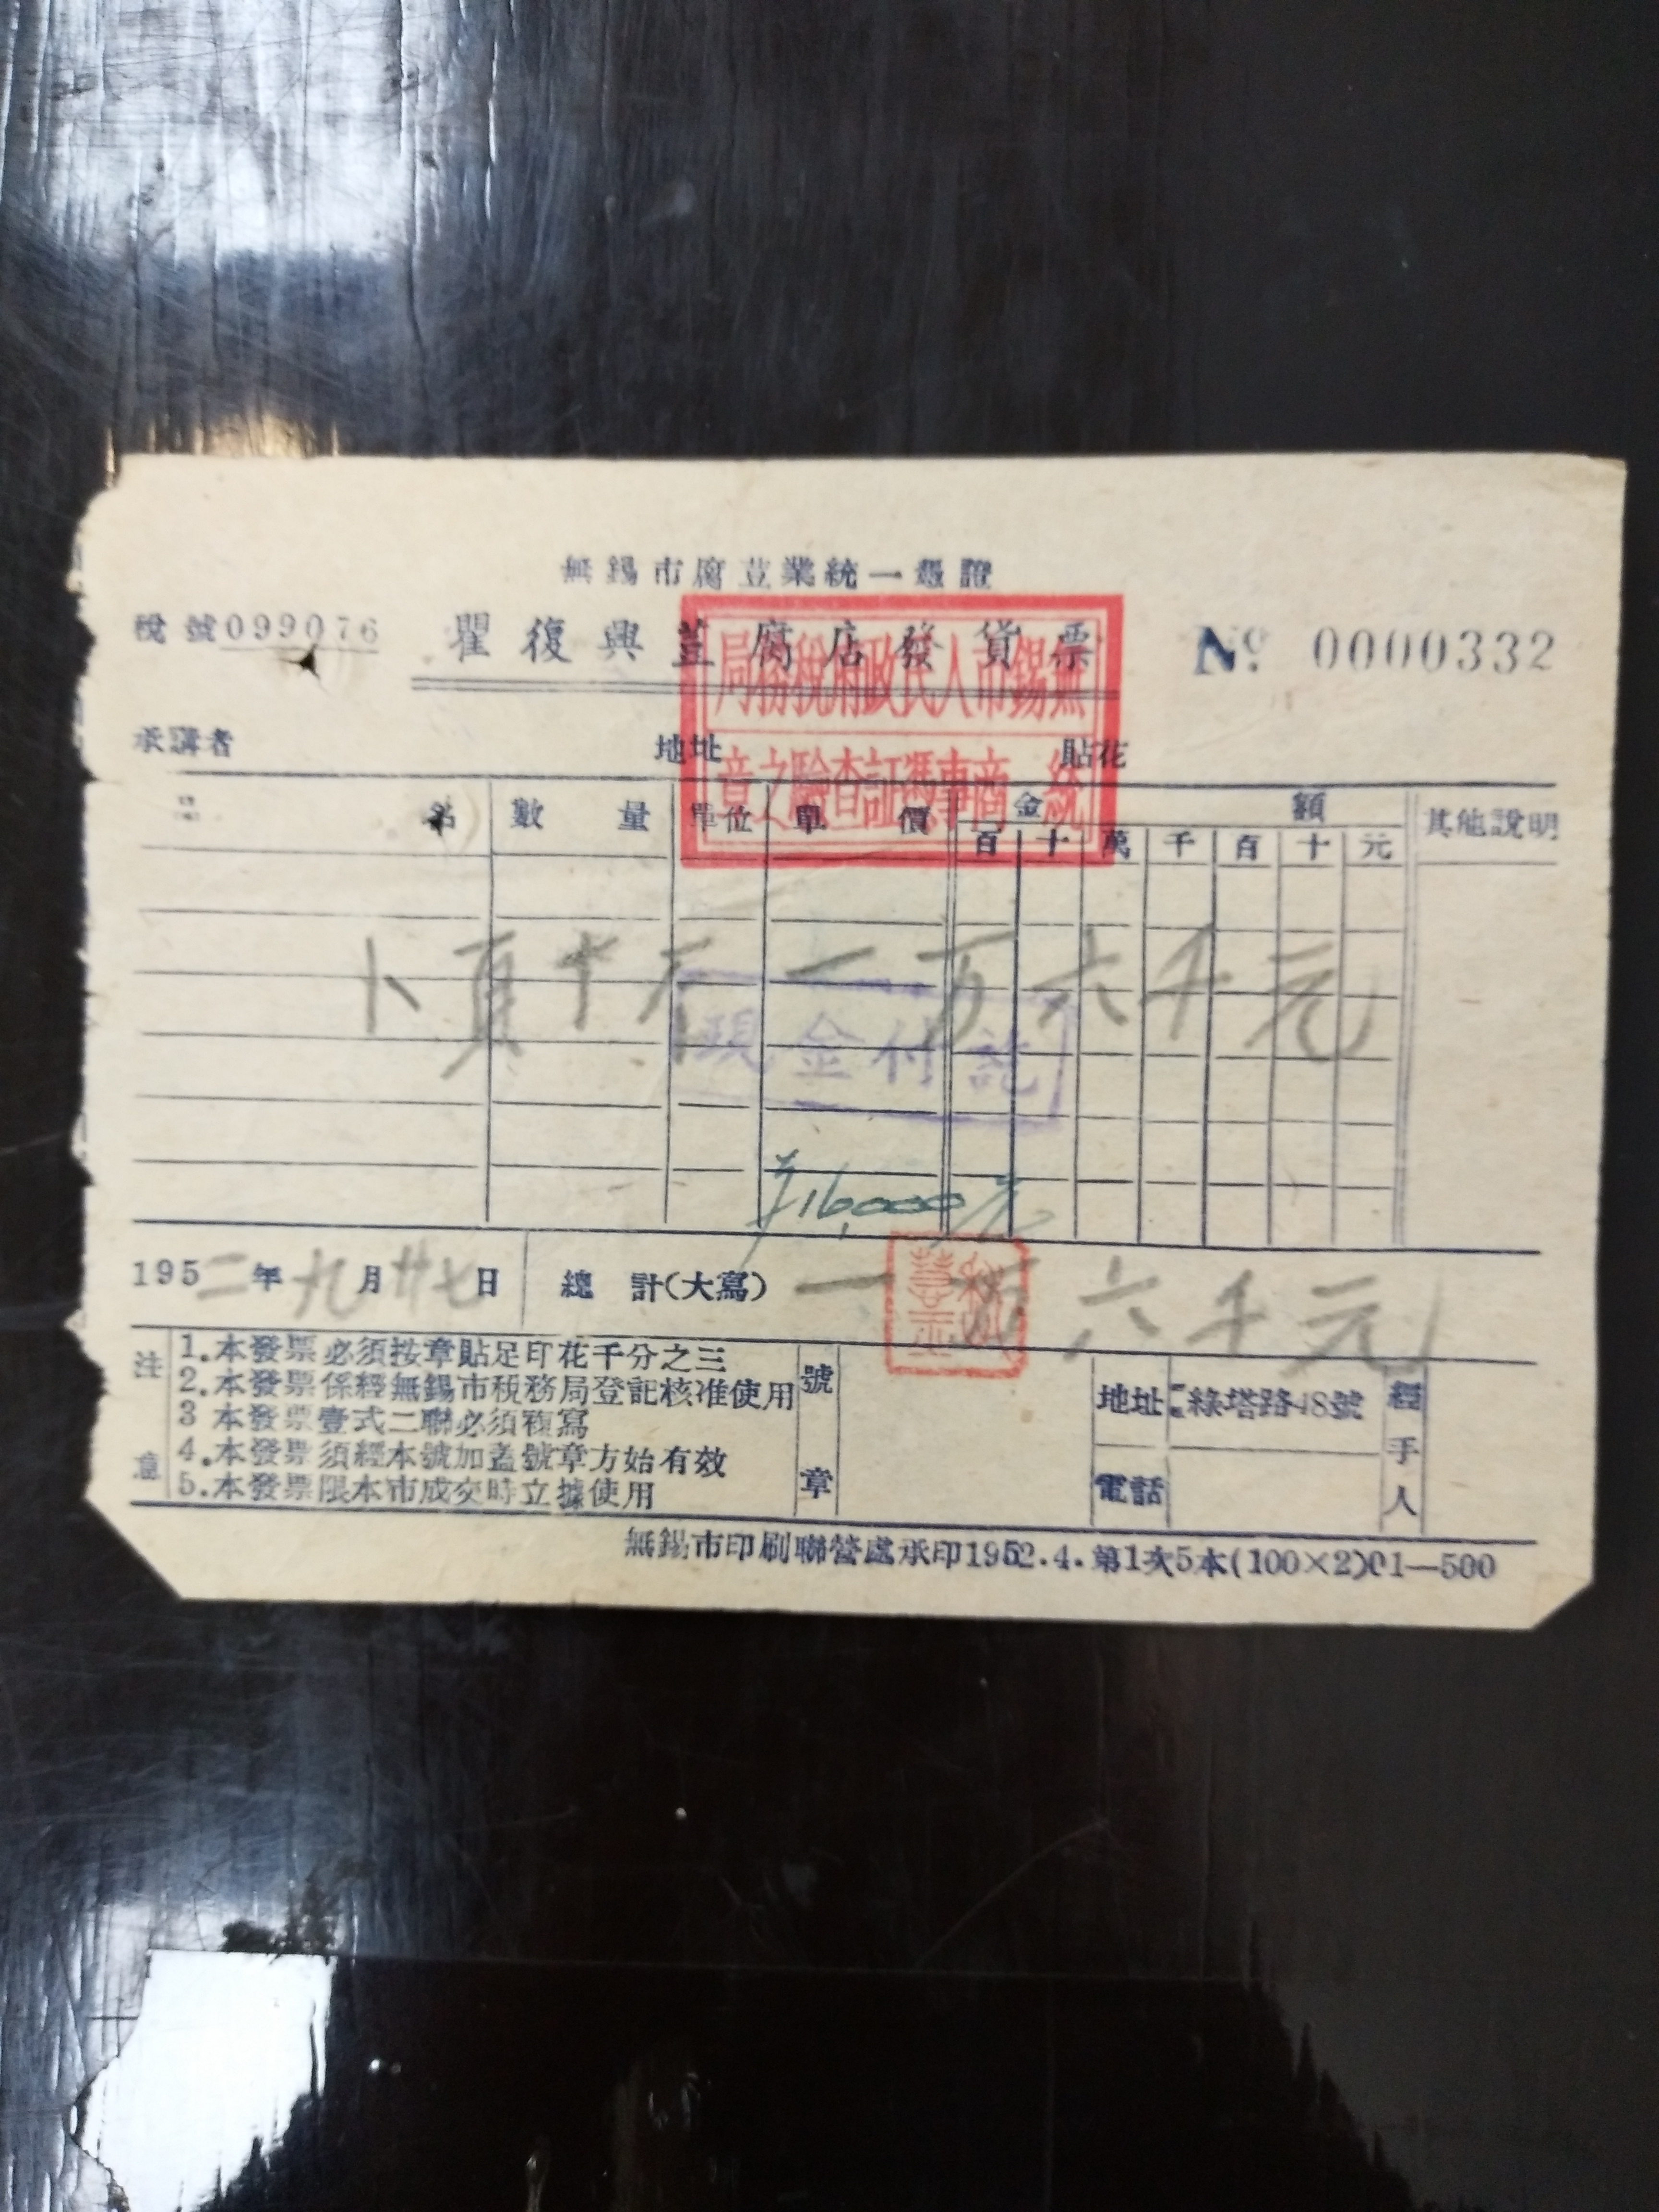 無錫市腐荳業統一憑證
稅號099076
瞿復興荳腐店發貨票
№ 0000332
無錫市人民政府稅務局
統一商事憑証查驗之章
承購者 地址 貼花
品名 數量 單位 單價 金額 其他說明
百 十 萬 千 百 十 元
一万六千元
現金付訖
¥16,000元
195二年九月廿七日 總計(大寫) 一万六千元
注意
1.本發票必須按章貼足印花千分之三
2.本發票係經無錫市稅務局登記核准使用
3 本發票壹式二聯必須複寫
4.本發票須經本號加蓋號章方始有效
5.本發票限本市成交時立據使用
號章
地址:綠塔路48號
電話
經手人
無錫市印刷聯營處承印1952.4.第1次5本(100×2)01—500